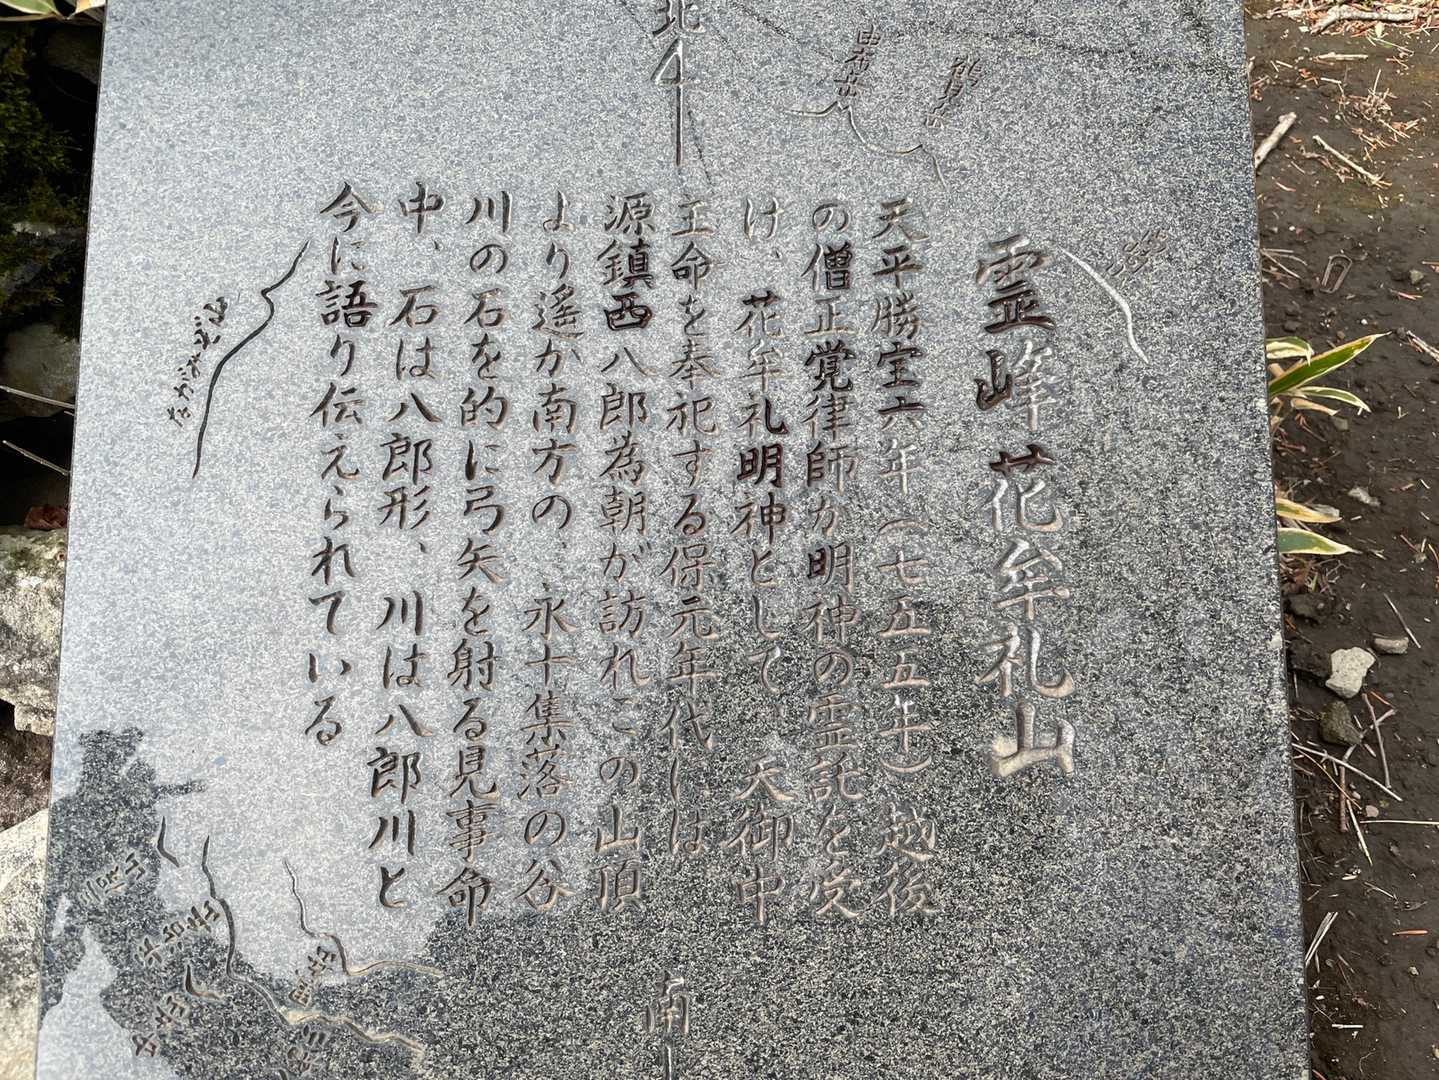 北
由布山
霊峰花牟礼山
天平勝宝六年(七五五年)越後
の僧正覚律師が明神の霊託を受
け、花牟礼明神として、天御中
王命を奉祀する保元年代には
源鎮西八郎為朝が訪れこの山頂
より遙か南方の、永十集落の谷
川の石を的に弓矢を射る見事命
中、石は八郎形、川は八郎川と
今に語り伝えられている
南